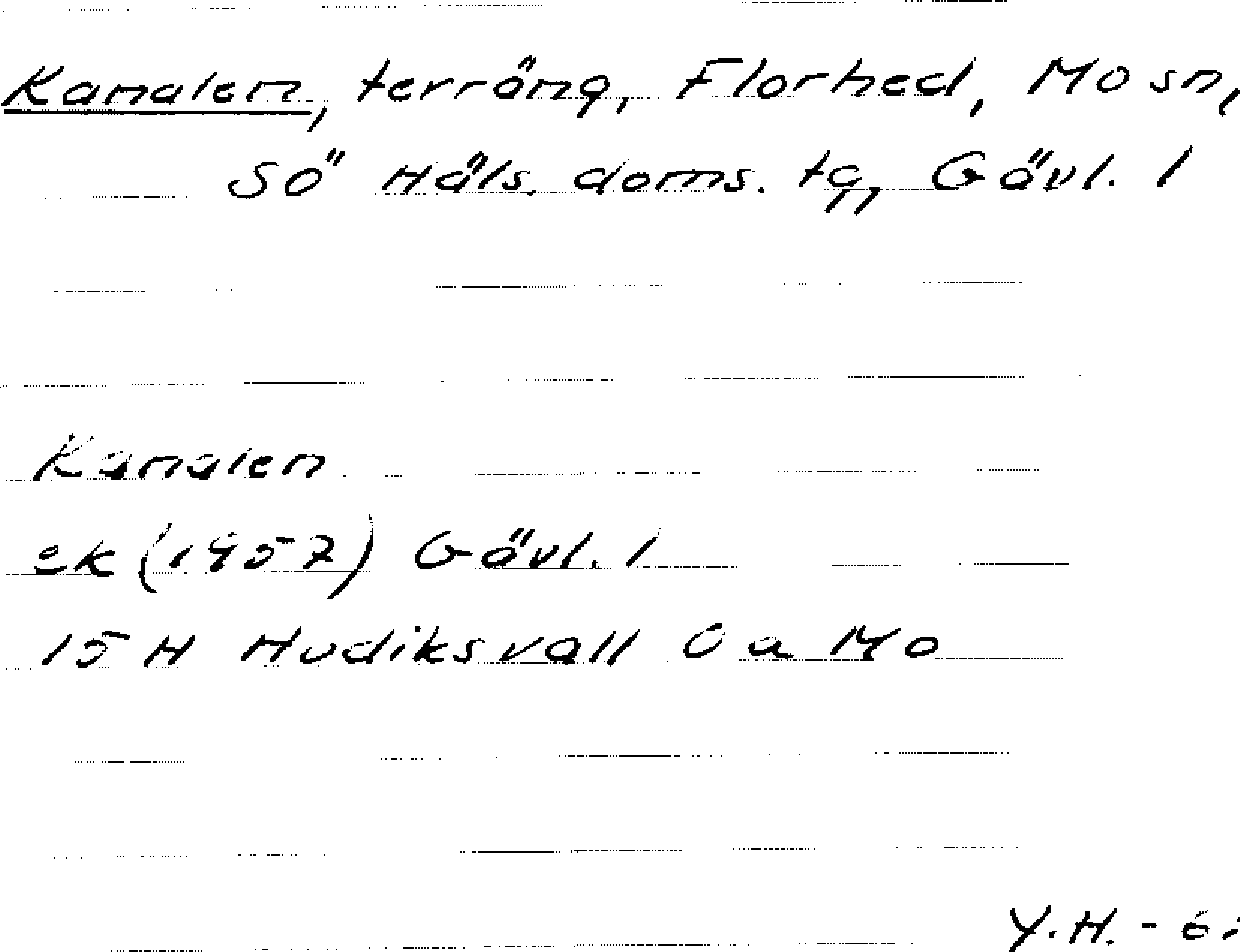 Kanalen, terräng, Florhed, Mo sn,
SÖ Häls. doms. tg, Gävl. l
Kanalen
ek (1957) Gävl. l
15 H Hudiksvall 0 a Mo
Y.H. -